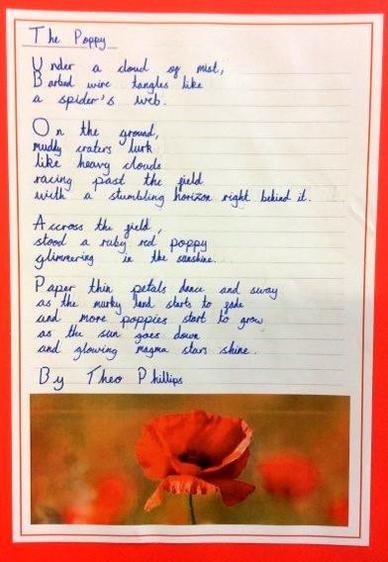 The Poppy
Under a cloud of mist,
Barbed wire tangles like
a spider's web.
On the ground,
muddy craters lurk
like heavy clouds
racing past the field
with a stumbling horizon right behind it.
Accross the field,
stood a ruby red poppy
glimmering in the sunshine.
Paper thin petals dance and sway
as the murky land starts to fade
and more poppies start to grow
as the sun goes down
and glowing magma stars shine.
By Theo Phillips